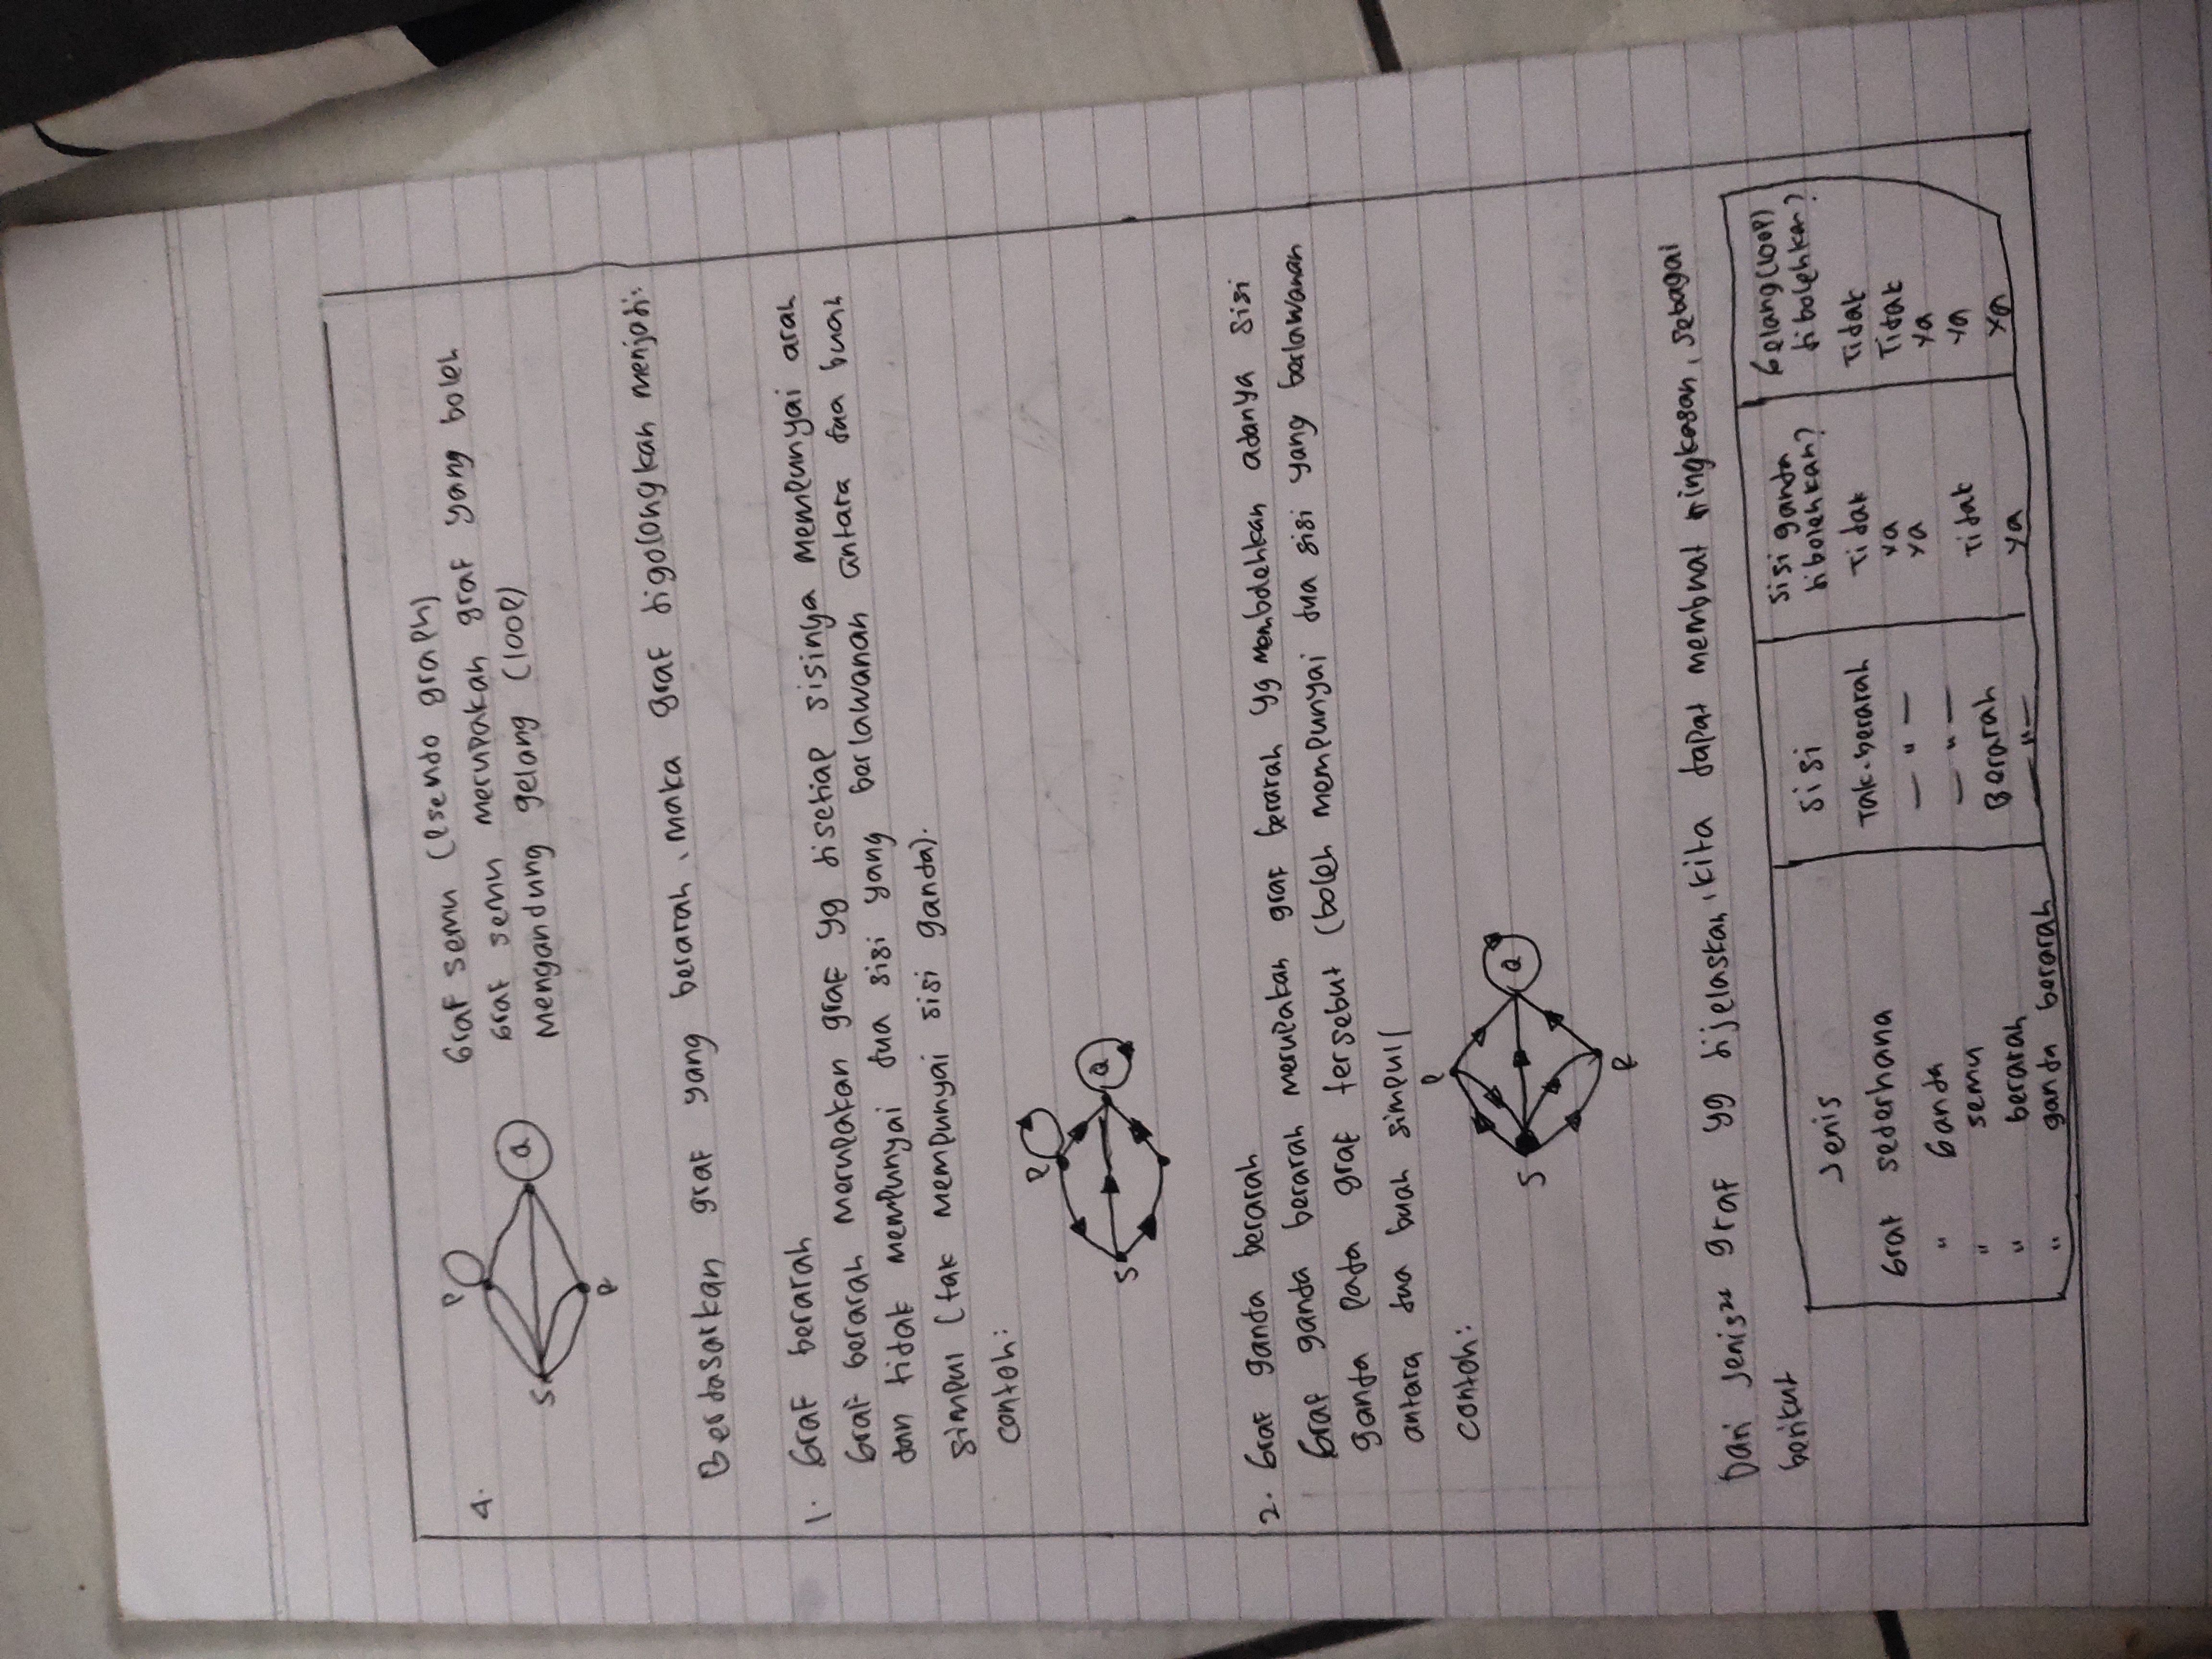 4.
Graf semu (Psendo graph)
Graf semu merupakan graf yang boleh
Mengandung gelang (loop)
P
Q
S
R
Berdasarkan graf yang berarah, maka graf digolongkan menjadi:
1. Graf berarah
Graf berarah merupakan graf yg disetiap sisinya mempunyai arah
dan tidak mempunyai dua sisi yang berlawanan antara dua buah
simpul (tak mempunyai sisi ganda).
contoh:
P
Q
S
2. Graf ganda berarah
Graf ganda berarah merupakan graf berarah yg membolehkan adanya sisi
ganda pada graf tersebut (boleh mempunyai dua sisi yang berlawanan
antara dua buah simpul)
contoh:
P
Q
S
R
Dari jenis" graf yg dijelaskan, kita dapat membuat ringkasan, sebagai
berikut
Jenis Sisi Sisi ganda dibolehkan? Gelang (loop) dibolehkan?
Graf sederhana Tak-berarah Tidak Tidak
" Ganda — " — Ya Tidak
" semu — " — Ya Ya
" berarah Berarah Tidak Ya
" ganda berarah — " — Ya Ya